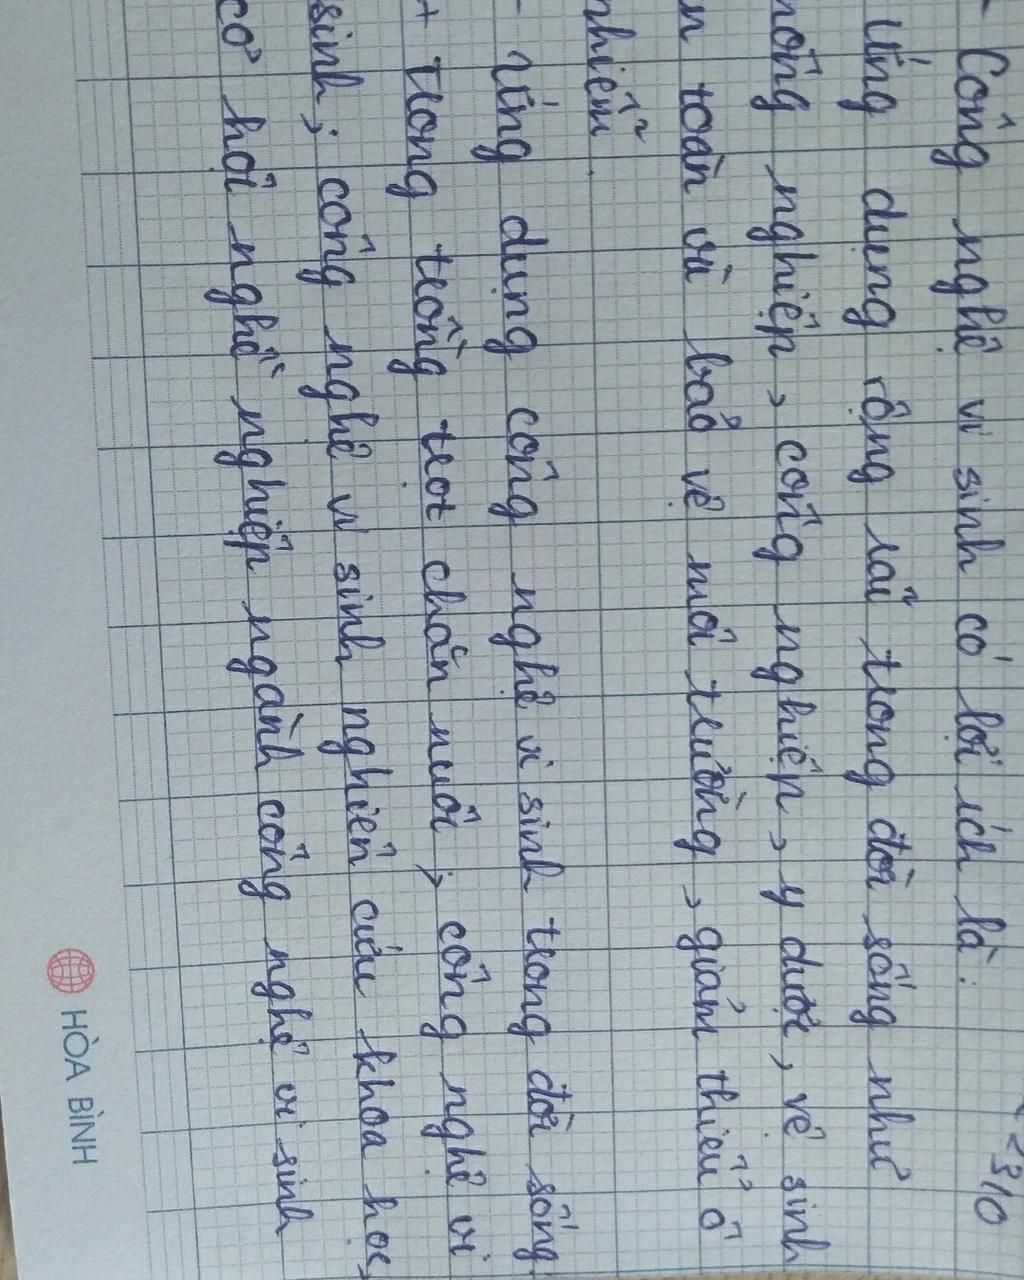 - Công nghệ vi sinh có lợi ích là:
Ứng dụng rộng rãi trong đời sống như
nông nghiệp, công nghiệp, y dược, vệ sinh
n toàn và bảo vệ môi trường, giảm thiểu ô
nhiễm
- Ứng dụng công nghệ vi sinh trong đời sống
+ trong trồng trọt chăn nuôi; công nghệ vi
sinh; công nghệ vi sinh nghiên cứu khoa học,
cơ hội nghề nghiệp ngành công nghệ vi sinh
HÒA BÌNH